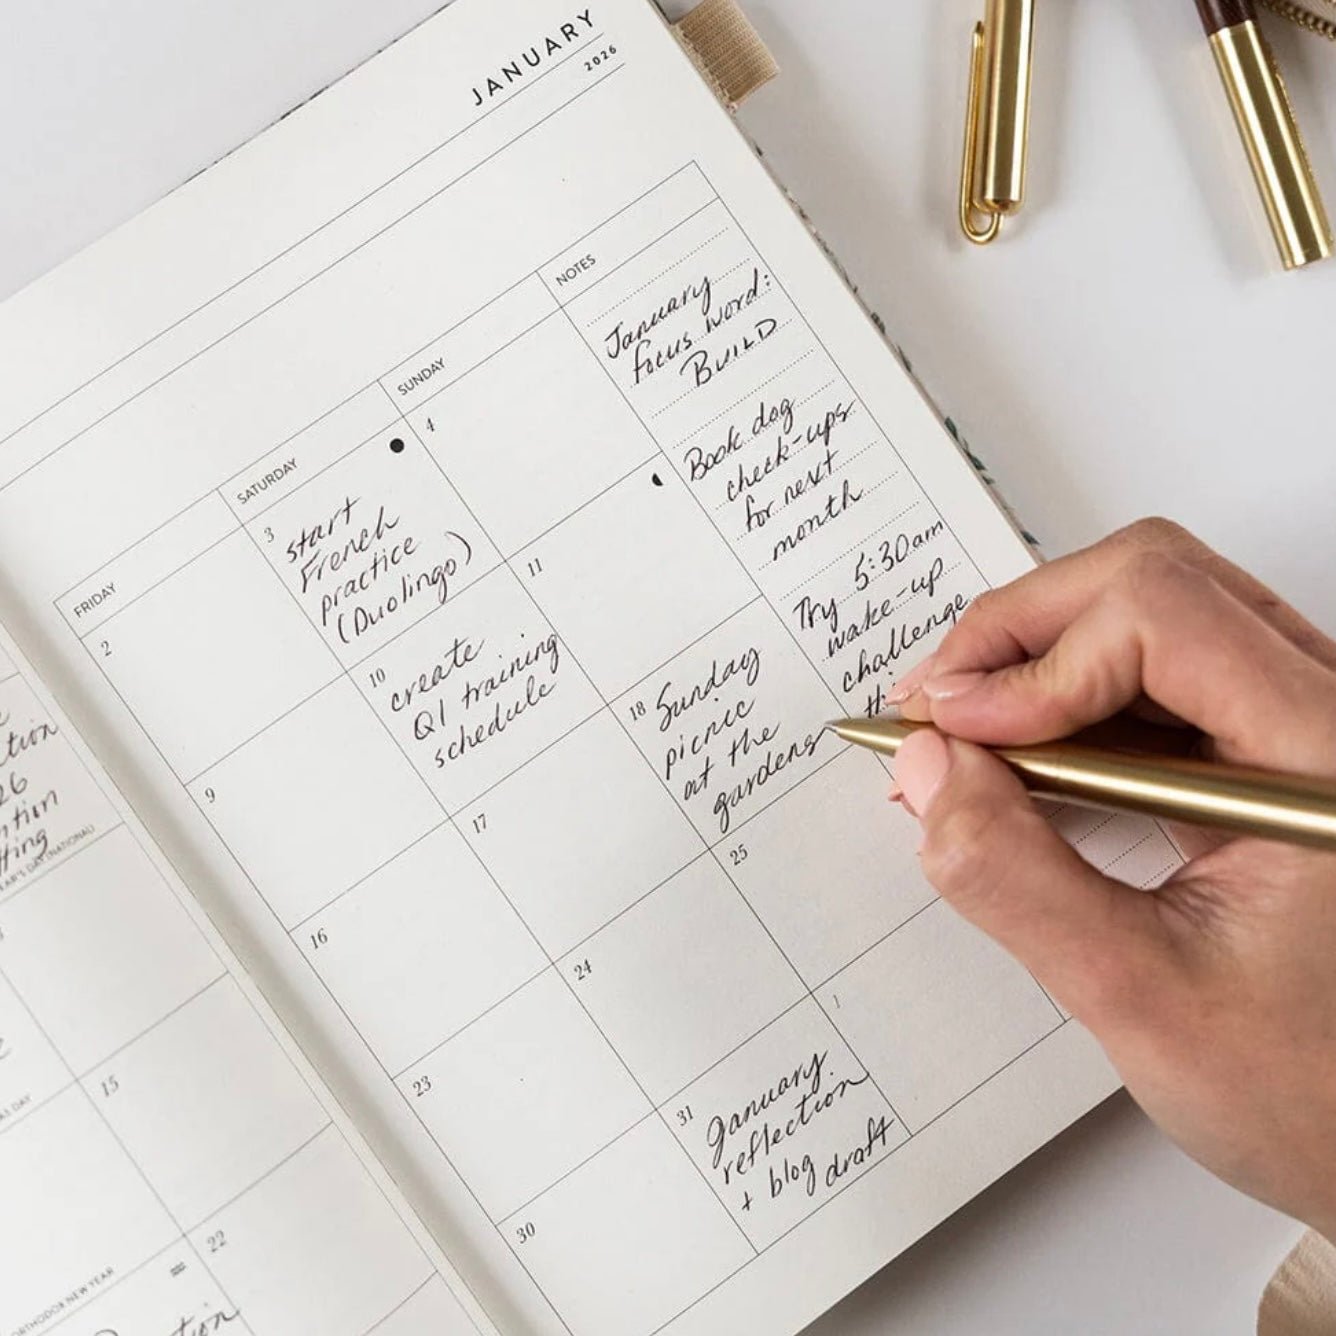 JANUARY
2026
FRIDAY
SATURDAY
SUNDAY
NOTES
2
3
start
French
practice
(Duolingo)
4
January
focus word:
BUILD
Book dog
check-ups
for next
month
Try 5:30am
wake-up
challenge
9
10
create
Q1 training
schedule
11
16
17
18
Sunday
picnic
at the
gardens
23
24
25
30
31
January
reflection
+ blog draft
1
15
22
26
(NATIONAL)
DAY
ORTHODOX NEW YEAR